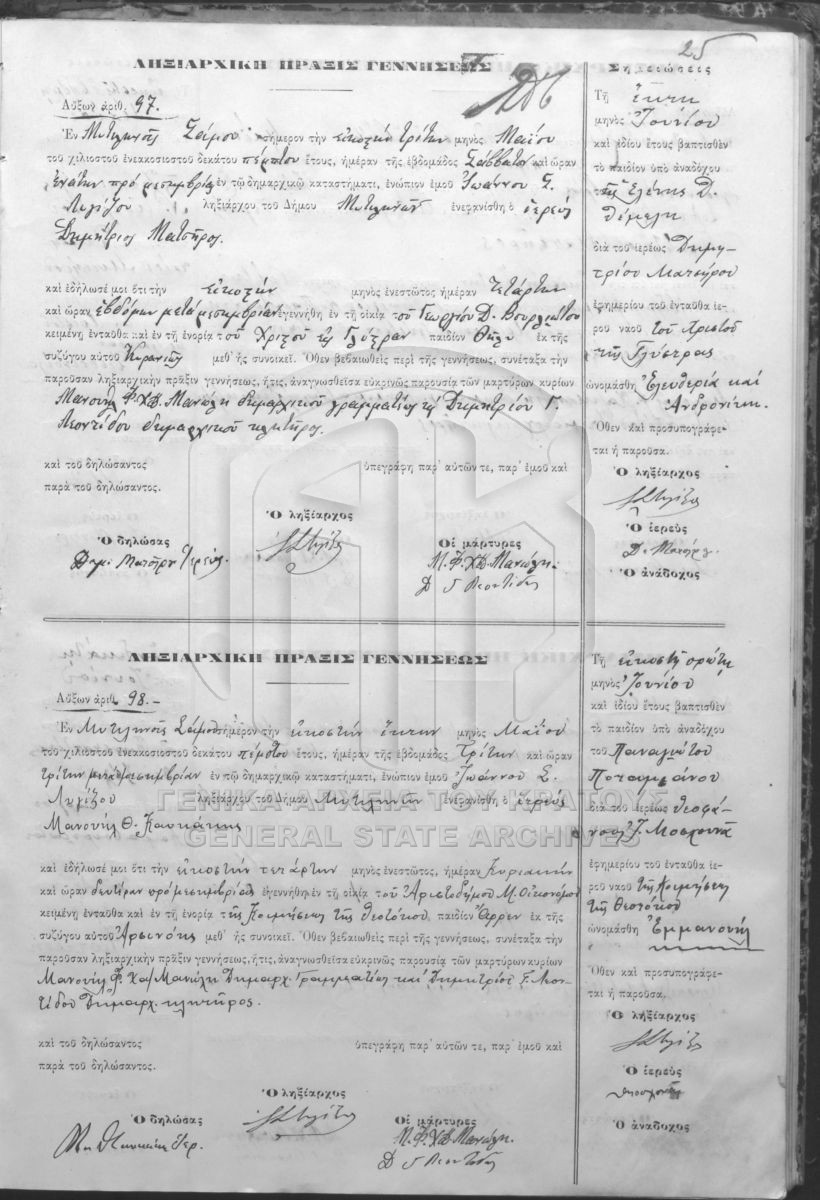 25
ΛΗΞΙΑΡΧΙΚΗ ΠΡΑΞΙΣ ΓΕΝΝΗΣΕΩΣ
Αὔξων ἀριθ. 97.
Ἐν Μυτιληνοῖς Σάμου σήμερον τὴν εἰκοστὴν τρίτην μηνὸς Μαΐου
τοῦ χιλιοστοῦ ἐνεακοσιοστοῦ δεκάτου πέμπτου ἔτους, ἡμέραν τῆς ἑβδομάδος Σάββατον καὶ ὥραν
ἐνάτην πρὸ μεσημβρίας ἐν τῷ δημαρχικῷ καταστήματι, ἐνώπιον ἐμοῦ Ἰωάννου Σ.
Λυγίζου ληξιάρχου τοῦ Δήμου Μυτιληνῶν ἐνεφανίσθη ὁ ἱερεὺς
Δημήτριος
καὶ ἐδήλωσέ μοι ὅτι τὴν εἰκοστὴν μηνὸς ἐνεστῶτος ἡμέραν Τετάρτην
καὶ ὥραν ἑβδόμην μετὰ μεσημβρίαν ἐγεννήθη ἐν τῇ οἰκίᾳ τοῦ Γεωργίου Δ. Βουρλιώτου
κειμένῃ ἐνταῦθα καὶ ἐν τῇ ἐνορίᾳ τοῦ Χριστοῦ παιδίον θῆλυ ἐκ τῆς
συζύγου αὐτοῦ μεθ᾽ ἧς συνοικεῖ. Ὅθεν βεβαιωθεὶς περὶ τῆς γεννήσεως, συνέταξα τὴν
παροῦσαν ληξιαρχικὴν πρᾶξιν γεννήσεως, ἥτις, ἀναγνωσθεῖσα εὐκρινῶς παρουσίᾳ τῶν μαρτύρων κυρίων
Μανουὴλ Φ. Χ"Δ. Μανώλη δημαρχικοῦ γραμματέως Δημητρίου Γ.
Λεοντίδου δημαρχικοῦ κλητῆρος.
καὶ τοῦ δηλώσαντος ὑπεγράφη παρ᾽ αὐτῶν τε, παρ᾽ ἐμοῦ καὶ
παρὰ τοῦ δηλώσαντος.
Ὁ δηλώσας
Ὁ ληξίαρχος
Οἱ μάρτυρες
Μ. Φ. Χ"Δ. Μανώλη.
Δ Γ Λεοντίδης
Σημειώσεις
Τῇ ἕκτῃ
μηνὸς Ἰουνίου
καὶ ἰδίου ἔτους βαπτισθὲν
τὸ παιδίον ὑπὸ ἀναδόχου
τῆς Ἑλένης Δ.
Θέμελη
διὰ τοῦ ἱερέως Δημη-
τρίου
ἐφημερίου τοῦ ἐνταῦθα ἱε-
ροῦ ναοῦ τοῦ Χριστοῦ
τῆς
ὠνομάσθη Ἐλευθερία καὶ
Ἀνδρονίκη.
Ὅθεν καὶ προσυπογράφε-
ται ἡ παροῦσα.
Ὁ ληξίαρχος
Ὁ ἱερεὺς
Ὁ ἀνάδοχος
ΛΗΞΙΑΡΧΙΚΗ ΠΡΑΞΙΣ ΓΕΝΝΗΣΕΩΣ
Αὔξων ἀριθ. 98.-
Ἐν Μυτιληνοῖς Σάμου σήμερον τὴν εἰκοστὴν ἕκτην μηνὸς Μαΐου
τοῦ χιλιοστοῦ ἐνεακοσιοστοῦ δεκάτου πέμπτου ἔτους, ἡμέραν τῆς ἑβδομάδος Τρίτην καὶ ὥραν
τρίτην μετὰ μεσημβρίαν ἐν τῷ δημαρχικῷ καταστήματι, ἐνώπιον ἐμοῦ Ἰωάννου Σ.
Λυγίζου ληξιάρχου τοῦ Δήμου Μυτιληνῶν ἐνεφανίσθη ὁ ἱερεὺς
Μανουὴλ Θ.
καὶ ἐδήλωσέ μοι ὅτι τὴν εἰκοστὴν τετάρτην μηνὸς ἐνεστῶτος, ἡμέραν Κυριακὴν
καὶ ὥραν δευτέραν πρὸ μεσημβρίας ἐγεννήθη ἐν τῇ οἰκίᾳ τοῦ Ἀριστοδήμου Μ. Οἰκονόμου
κειμένῃ ἐνταῦθα καὶ ἐν τῇ ἐνορίᾳ τῆς Κοιμήσεως τῆς Θεοτόκου παιδίον ἄρρεν ἐκ τῆς
συζύγου αὐτοῦ Ἀρσινόης μεθ᾽ ἧς συνοικεῖ. Ὅθεν βεβαιωθεὶς περὶ τῆς γεννήσεως, συνέταξα τὴν
παροῦσαν ληξιαρχικὴν πρᾶξιν γεννήσεως, ἥτις, ἀναγνωσθεῖσα εὐκρινῶς παρουσίᾳ τῶν μαρτύρων κυρίων
Μανουὴλ Φ. Χ"Μανώλη Δημαρχ. Γραμματέως καὶ Δημητρίου Γ. Λεον-
τίδου Δημαρχ. κλητῆρος.
καὶ τοῦ δηλώσαντος ὑπεγράφη παρ᾽ αὐτῶν τε, παρ᾽ ἐμοῦ καὶ
παρὰ τοῦ δηλώσαντος.
Ὁ δηλώσας
Ὁ ληξίαρχος
Οἱ μάρτυρες
Μ. Φ. Χ"Δ. Μανώλη.
Δ Γ Λεοντίδης
Τῇ εἰκοστῇ πρώτῃ
μηνὸς Ἰουνίου
καὶ ἰδίου ἔτους βαπτισθὲν
τὸ παιδίον ὑπὸ ἀναδόχου
τοῦ Παναγιώτου
Ποταμιάνου
διὰ τοῦ ἱερέως Θεοφά-
νους Γ.
ἐφημερίου τοῦ ἐνταῦθα ἱε-
ροῦ ναοῦ τῆς Κοιμήσεως
τῆς Θεοτόκου
ὠνομάσθη Ἐμμανουὴλ
Ὅθεν καὶ προσυπογράφε-
ται ἡ παροῦσα.
Ὁ ληξίαρχος
Ὁ ἱερεὺς
Ὁ ἀνάδοχος
ΓΕΝΙΚΑ ΑΡΧΕΙΑ ΤΟΥ ΚΡΑΤΟΥΣ
GENERAL STATE ARCHIVES